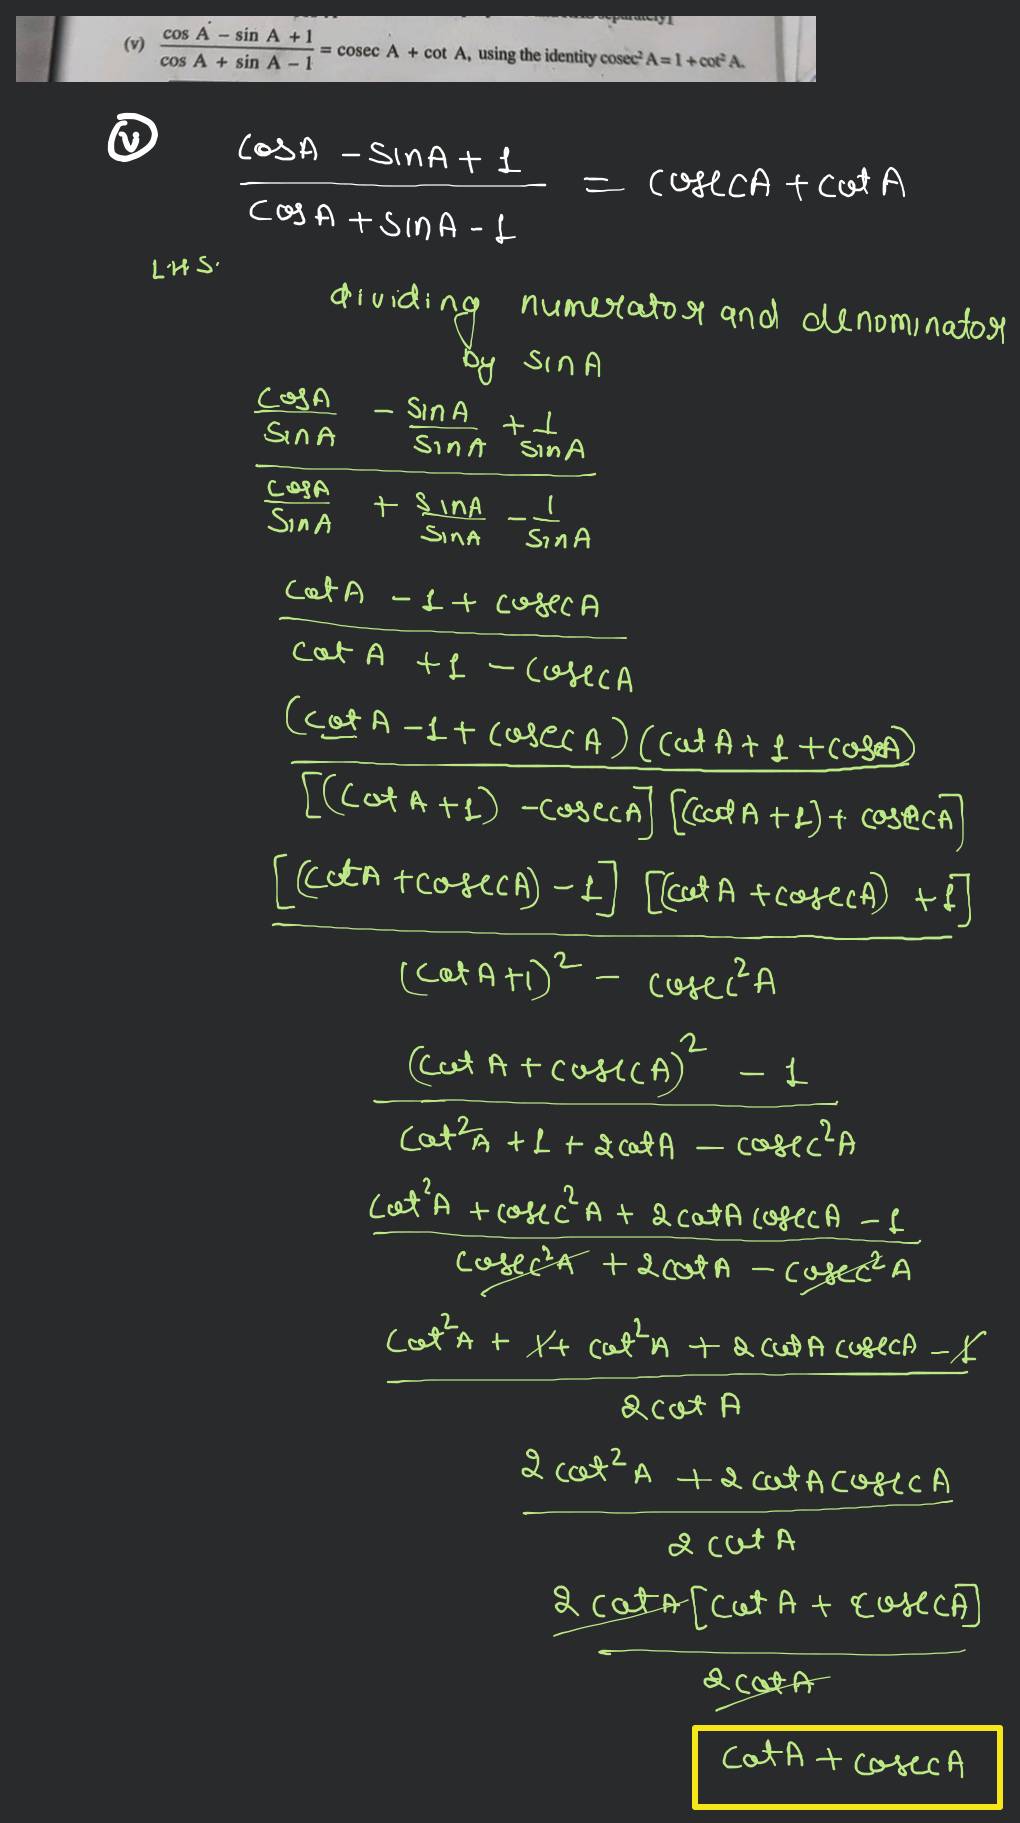 (v) cos A - sin A + 1 / cos A + sin A - 1 = cosec A + cot A, using the identity cosec² A = 1 + cot² A.
(v) cosA - sinA + 1 / cosA + sinA - 1 = cosecA + cot A
L.H.S.
dividing numerator and denominator
by sin A
cosA/sinA - sinA/sinA + 1/sinA
cosA/sinA + sinA/sinA - 1/sinA
cot A - 1 + cosec A
cot A + 1 - cosecA
(cot A - 1 + cosec A) (cot A + 1 + cosecA)
[(cot A + 1) - cosecA] [(cot A + 1) + cosecA]
[(cotA + cosecA) - 1] [(cot A + cosecA) + 1]
(cot A + 1)² - cosec²A
(cot A + cosecA)² - 1
cot²A + 1 + 2cotA - cosec²A
cot²A + cosec²A + 2cotA cosecA - 1
cosec²A + 2cotA - cosec²A
cot²A + 1 + cot²A + 2 cotA cosecA - 1
2cot A
2 cot²A + 2 cotA cosecA
2 cot A
2 cotA [cot A + cosecA]
2cotA
cotA + cosecA